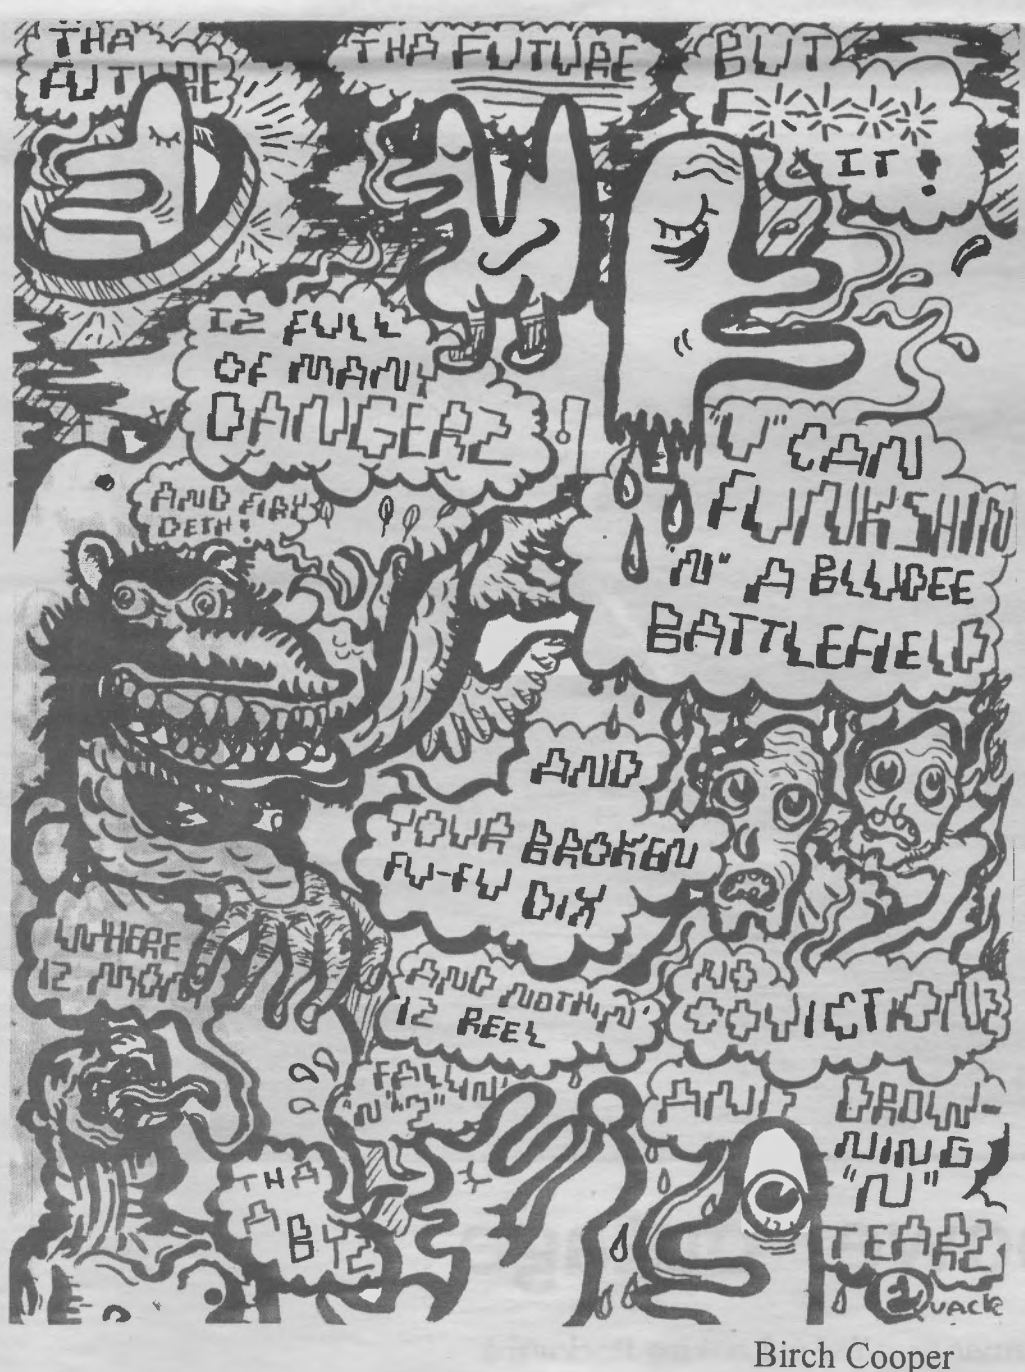 THA
FUTURE
THA FUTURE
BUT
F****
IT!
IZ FULL
OF MANY
DANGERZ
AND FIRY
DETH!
"U" CAN
FUNKSHIN
"N" A BLUDEE
BATTLEFIELD
AND
YOUR BROKEN
FU-FU DIX
WHERE
IZ MOM
AND NOTHIN'
IZ REEL
NO
CONVICTIONZ
FALLIN'
"N" "2"
THA
ABYZ
AND DROWN-
NING
"N"
TEARZ
QUACK
Birch Cooper